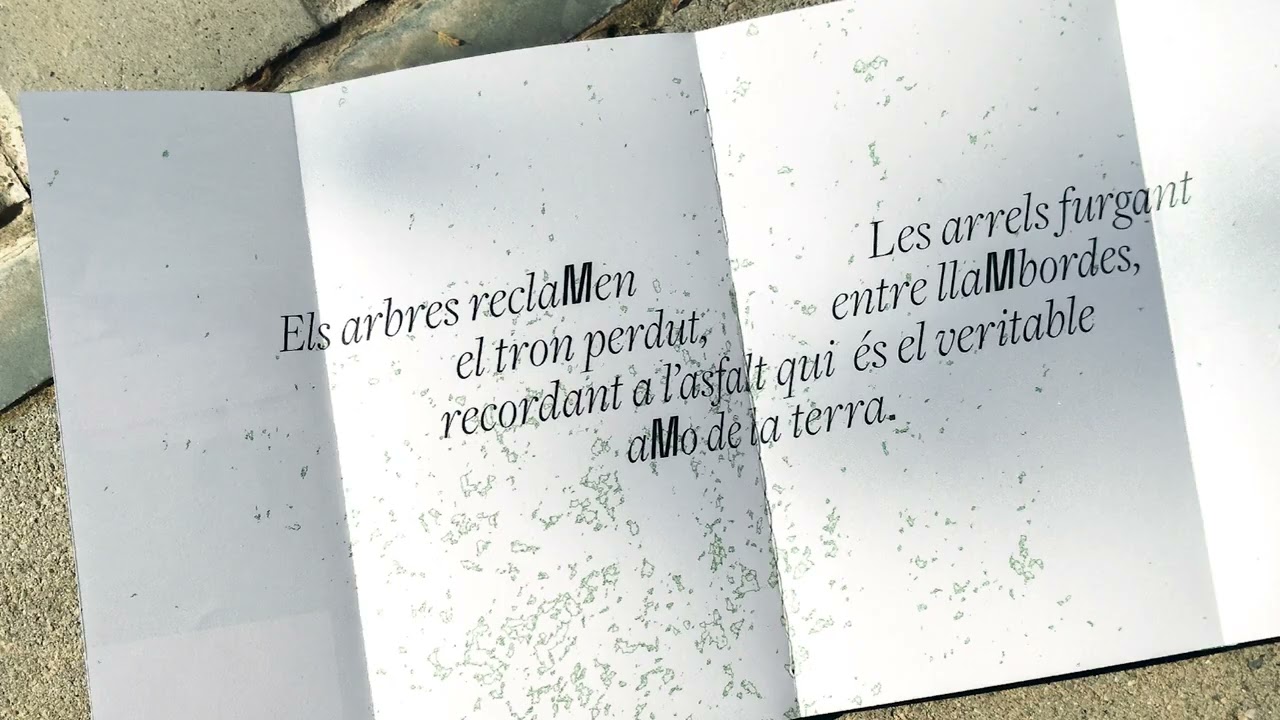 Els arbres reclaMen
el tron perdut,
Les arrels furgant
entre llaMbordes,
recordant a l'asfalt qui és el veritable
aMo de la terra.